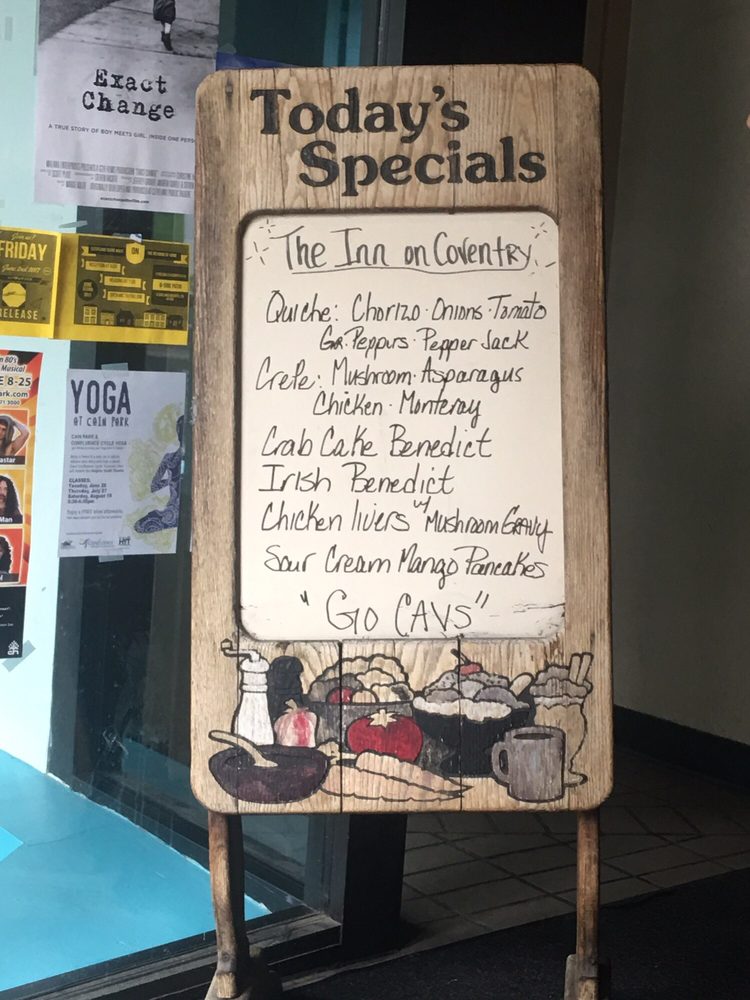 Exact
Change
A TRUE STORY OF BOY MEETS GIRL, INSIDE ONE
Today's
Specials
The Inn on Coventry
Quiche: Chorizo · Onions · Tomato
Gr. Peppers · Pepper Jack
Crepe: Mushroom · Asparagus
Chicken · Monteray
Crab Cake Benedict
Irish Benedict
Chicken livers w/ Mushroom Gravy
Sour Cream Mango Pancakes
"GO CAVS"
FRIDAY
June 2nd 2017
RELEASE
ON
Musical
E 8-25
ark.com
YOGA
AT CAIN PARK
CLASSES:
Man